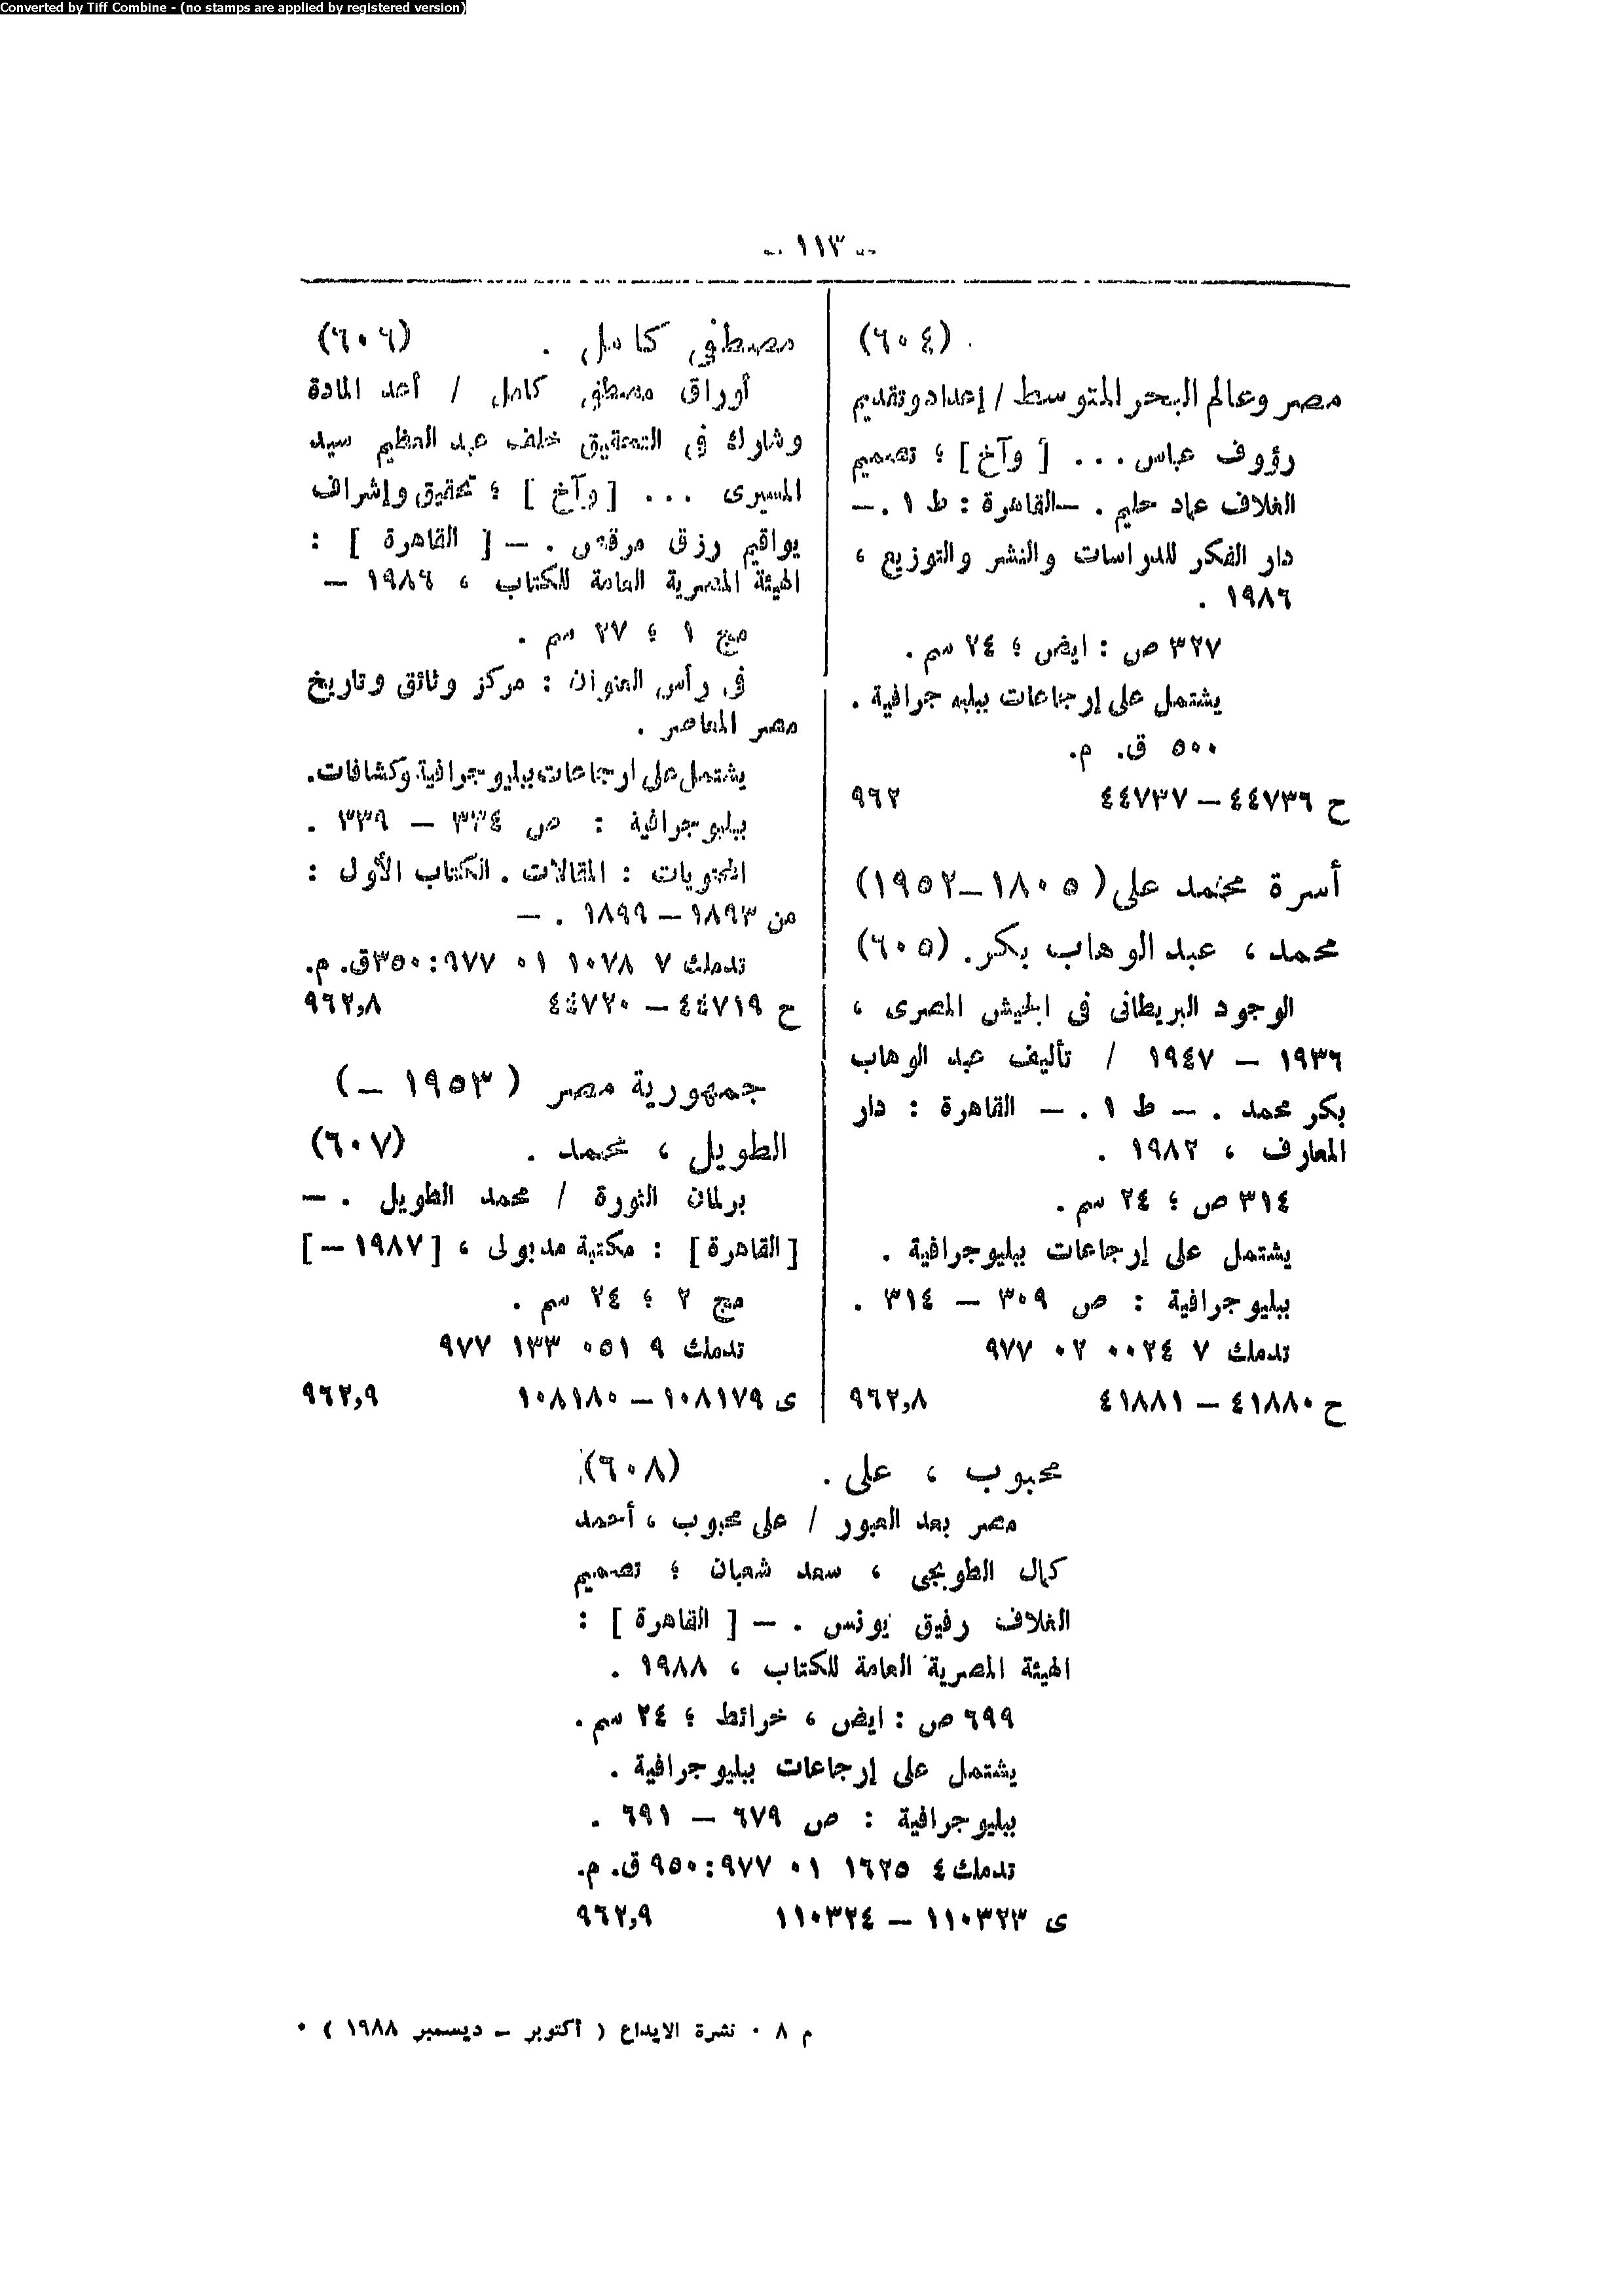 Converted by Tiff Combine - (no stamps are applied by registered version)
-- ١١٣ --
(٦٠٤) .
مصر وعالم البحر المتوسط / إعداد وتقديم
رؤوف عباس ... [ وآخ ] ؛ تصميم
الغلاف عماد حليم . – القاهرة : ط ١ . –
دار الفكر للدراسات والنشر والتوزيع ،
١٩٨٦ .
٣٢٧ ص : ايض ؛ ٢٤ سم .
يشتمل على إرجاعات ببليو جرافية .
٥٠٠ ق. م.
ح ٤٤٧٣٦ – ٤٤٧٣٧ ٩٦٢
أسرة محمد على ( ١٨٠٥–١٩٥٢)
محمد ، عبد الوهاب بكر. (٦٠٥)
الوجود البريطانى فى الجيش المصرى ،
١٩٣٦ – ١٩٤٧ / تأليف عبد الوهاب
بكر محمد . – ط ١ . – القاهرة : دار
المعارف ، ١٩٨٢ .
٣١٤ ص ؛ ٢٤ سم .
يشتمل على إرجاعات ببليوجرافية .
ببليوجرافية : ص ٣٠٩ – ٣١٤ .
تدمك ٧ ٠٠٢٤ ٠٢ ٩٧٧
ح ٤١٨٨٠ – ٤١٨٨١ ٩٦٢,٨
مصطفى كامل . (٦٠٦)
أوراق مصطفى كامل / أعد المادة
وشارك فى التحقيق خلف عبد العظيم سيد
المسيرى ... [ وآخ ] ؛ تحقيق وإشراف
يواقيم رزق مرقص . – [ القاهرة ] :
الهيئة المصرية العامة للكتاب ، ١٩٨٦ –
مج ١ ؛ ٢٧ سم .
فى رأس العنوان : مركز وثائق وتاريخ
مصر المعاصر .
يشتمل على ارجاعات ببليو جرافية وكشافات.
ببليوجرافية : ص ٣٣٤ – ٣٣٩ .
المحتويات : المقالات . الكتاب الأول :
من ١٨٩٣ – ١٨٩٩ . –
تدمك ٧ ١٠٧٨ ٠١ ٩٧٧ : ٣٥٠ق. م.
ح ٤٤٧١٩ – ٤٤٧٢٠ ٩٦٢,٨
جمهورية مصر ( ١٩٥٣ – )
الطويل ، محمد . (٦٠٧)
برلمان الثورة / محمد الطويل . –
[القاهرة] : مكتبة مدبولى ، [١٩٨٧ –]
مج ٢ ؛ ٢٤ سم .
تدمك ٩ ٠٥١ ١٣٣ ٩٧٧
ى ١٠٨١٧٩ – ١٠٨١٨٠ ٩٦٢,٩
محبوب ، على . (٦٠٨)
مصر بعد العبور / على محبوب ، أحمد
كمال الطوبجى ، سعد شعبان ؛ تصميم
الغلاف رفيق يونس . – [ القاهرة ] :
الهيئة المصرية العامة للكتاب ، ١٩٨٨ .
٦٩٩ ص : ايض ، خرائط ؛ ٢٤ سم .
يشتمل على إرجاعات ببليوجرافية .
ببليوجرافية : ص ٦٧٩ – ٦٩١ .
تدمك ٤ ١٦٢٥ ٠١ ٩٧٧ : ٩٥٠ ق. م.
ى ١١٠٣٢٣ – ١١٠٣٢٤ ٩٦٢,٩
م ٨ ٠ نشرة الايداع ( أكتوبر – ديسمبر ١٩٨٨ ) ٠